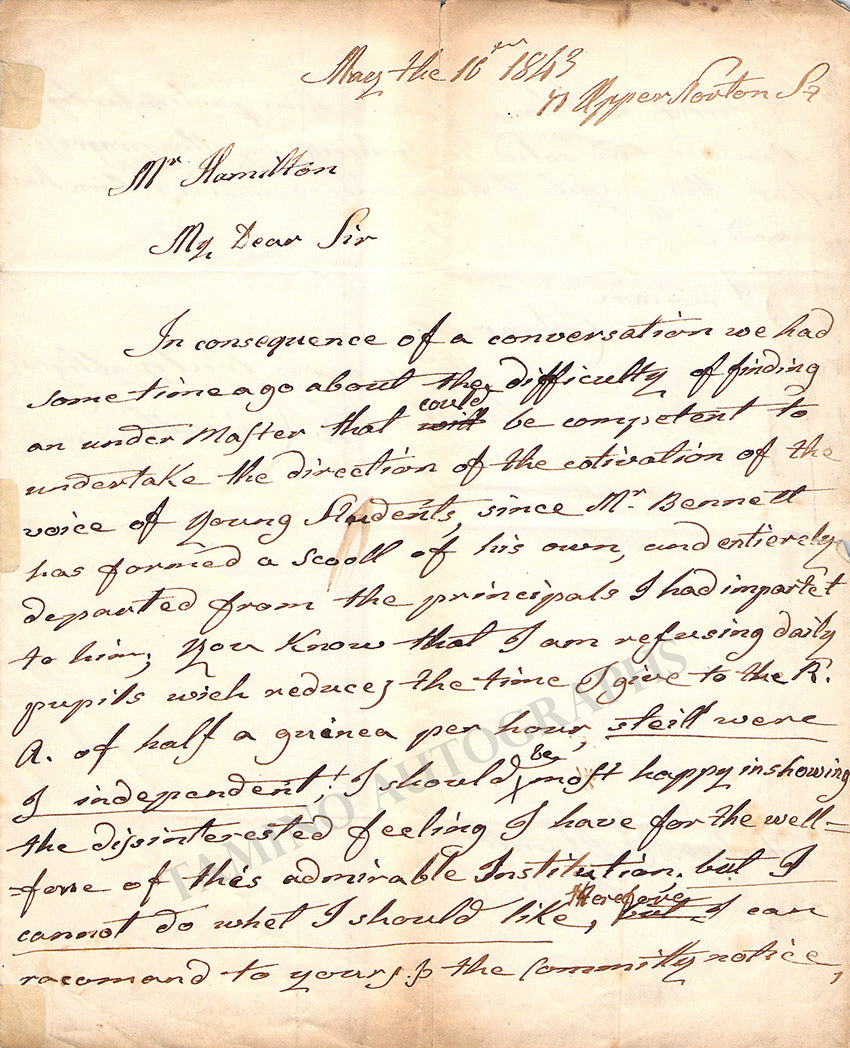 May the 16th 1843
71 Upper Norton St
Mr Hamilton
My Dear Sir
In consequence of a conversation we had
some time ago about the difficulty of finding
an under Master that ~~will~~ could be competent to
undertake the direction of the cotivation of the
voice of Young Students, since Mr. Bennett
has formed a scooll of his own, and entierely
departed from the principals I had impartet
to him; You Know that I am refusing daily
pupils wich reduces the time I give to the R.
A. of half a guinea per hour, steill were
I independent! I should be most happy in showing
the disinterested feeling I have for the well=
=fare of this admirable Institution. but I
cannot do whet I should like, ~~but~~ therefore I can
racomand to yours. & the Committy notice,
TAMINO AUTOGRAPHS